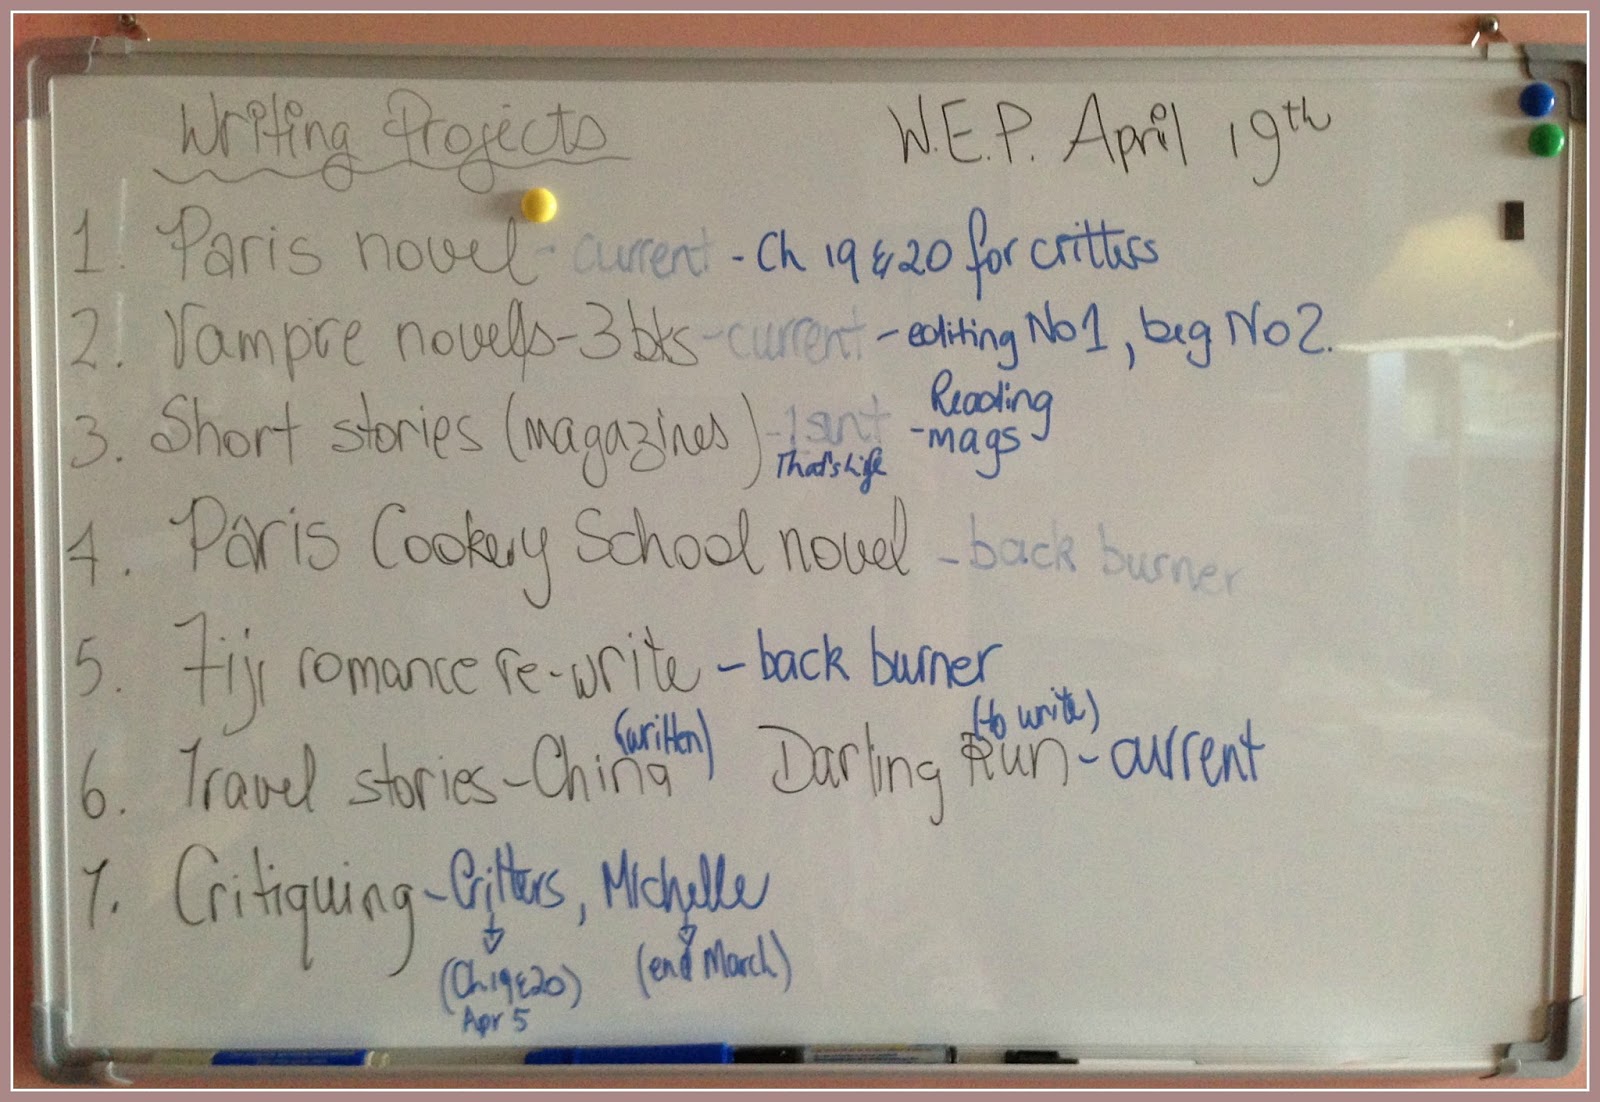 Writing Projects
W.E.P. April 19th
1. Paris novel - current - Ch 19 & 20 for critters
2. Vampire novels - 3 bks - current - editing No 1, beg No 2.
3. Short stories (magazines) - 1 sent - Reading mags
That's Life
4. Paris Cookery School novel - back burner
5. Fiji romance re-write - back burner
(written) (to write)
6. Travel stories - China Darling Run - current
7. Critiquing - Critters, Michelle
(Ch 19 & 20) (end March)
Apr 5